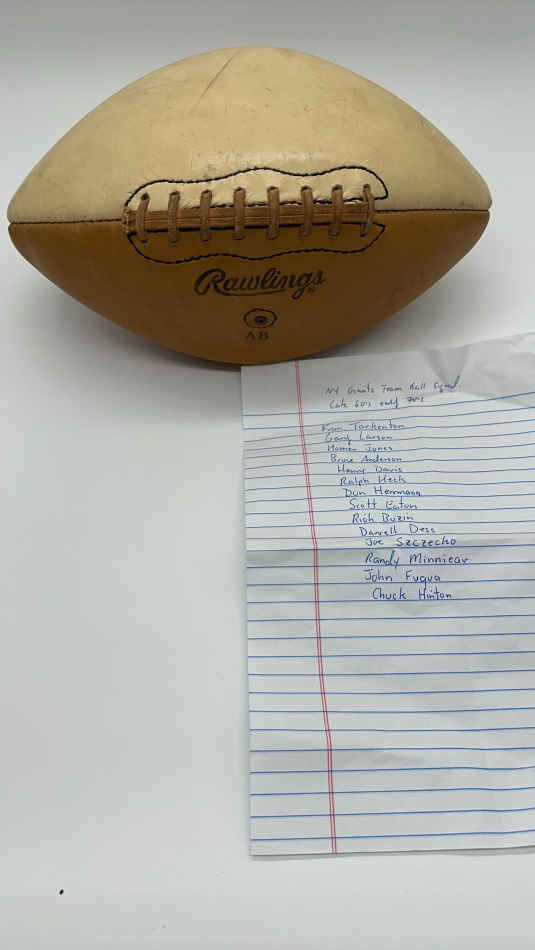 Rawlings
®
AB
NY Giants Team Ball Signed
Late 60's early 70's
Fran Tarkenton
Gary Larson
Homer Jones
Bruce Anderson
Henry Davis
Ralph Heck
Don Herrmann
Scott Eaton
Rich Buzin
Darrell Dess
Joe Szczecko
Randy Minniear
John Fuqua
Chuck Hinton